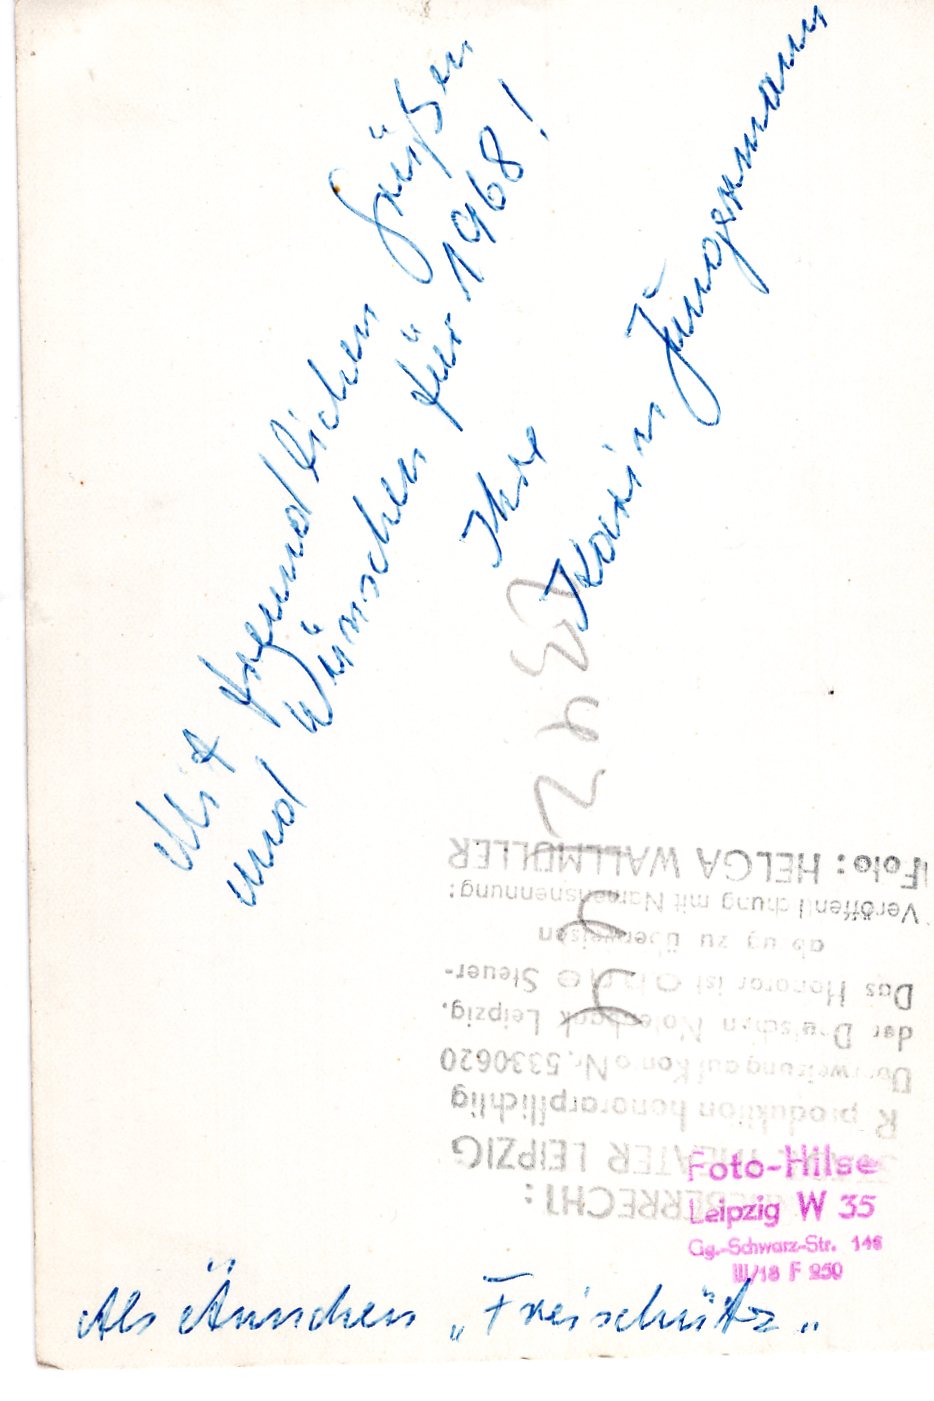 Mit freundlichen Grüßen
und Wünschen für 1968!
Ihre
Karin Jungermann
Foto: HELGA WALLMÜLLER
Veröffentlichung mit Namensnennung:
ab ug zu überweisen
Das Honorar ist ohne Steuer-
der Deutschen Notenbank Leipzig.
Überweisung auf Konto Nr. 5330620
Reproduktion honorarpflichtig
THEATER LEIPZIG
URHEBERRECHT:
Foto-Hilse
Leipzig W 35
Gg.-Schwarz-Str. 146
III/18 F 250
Als Ännchen „Freischütz„